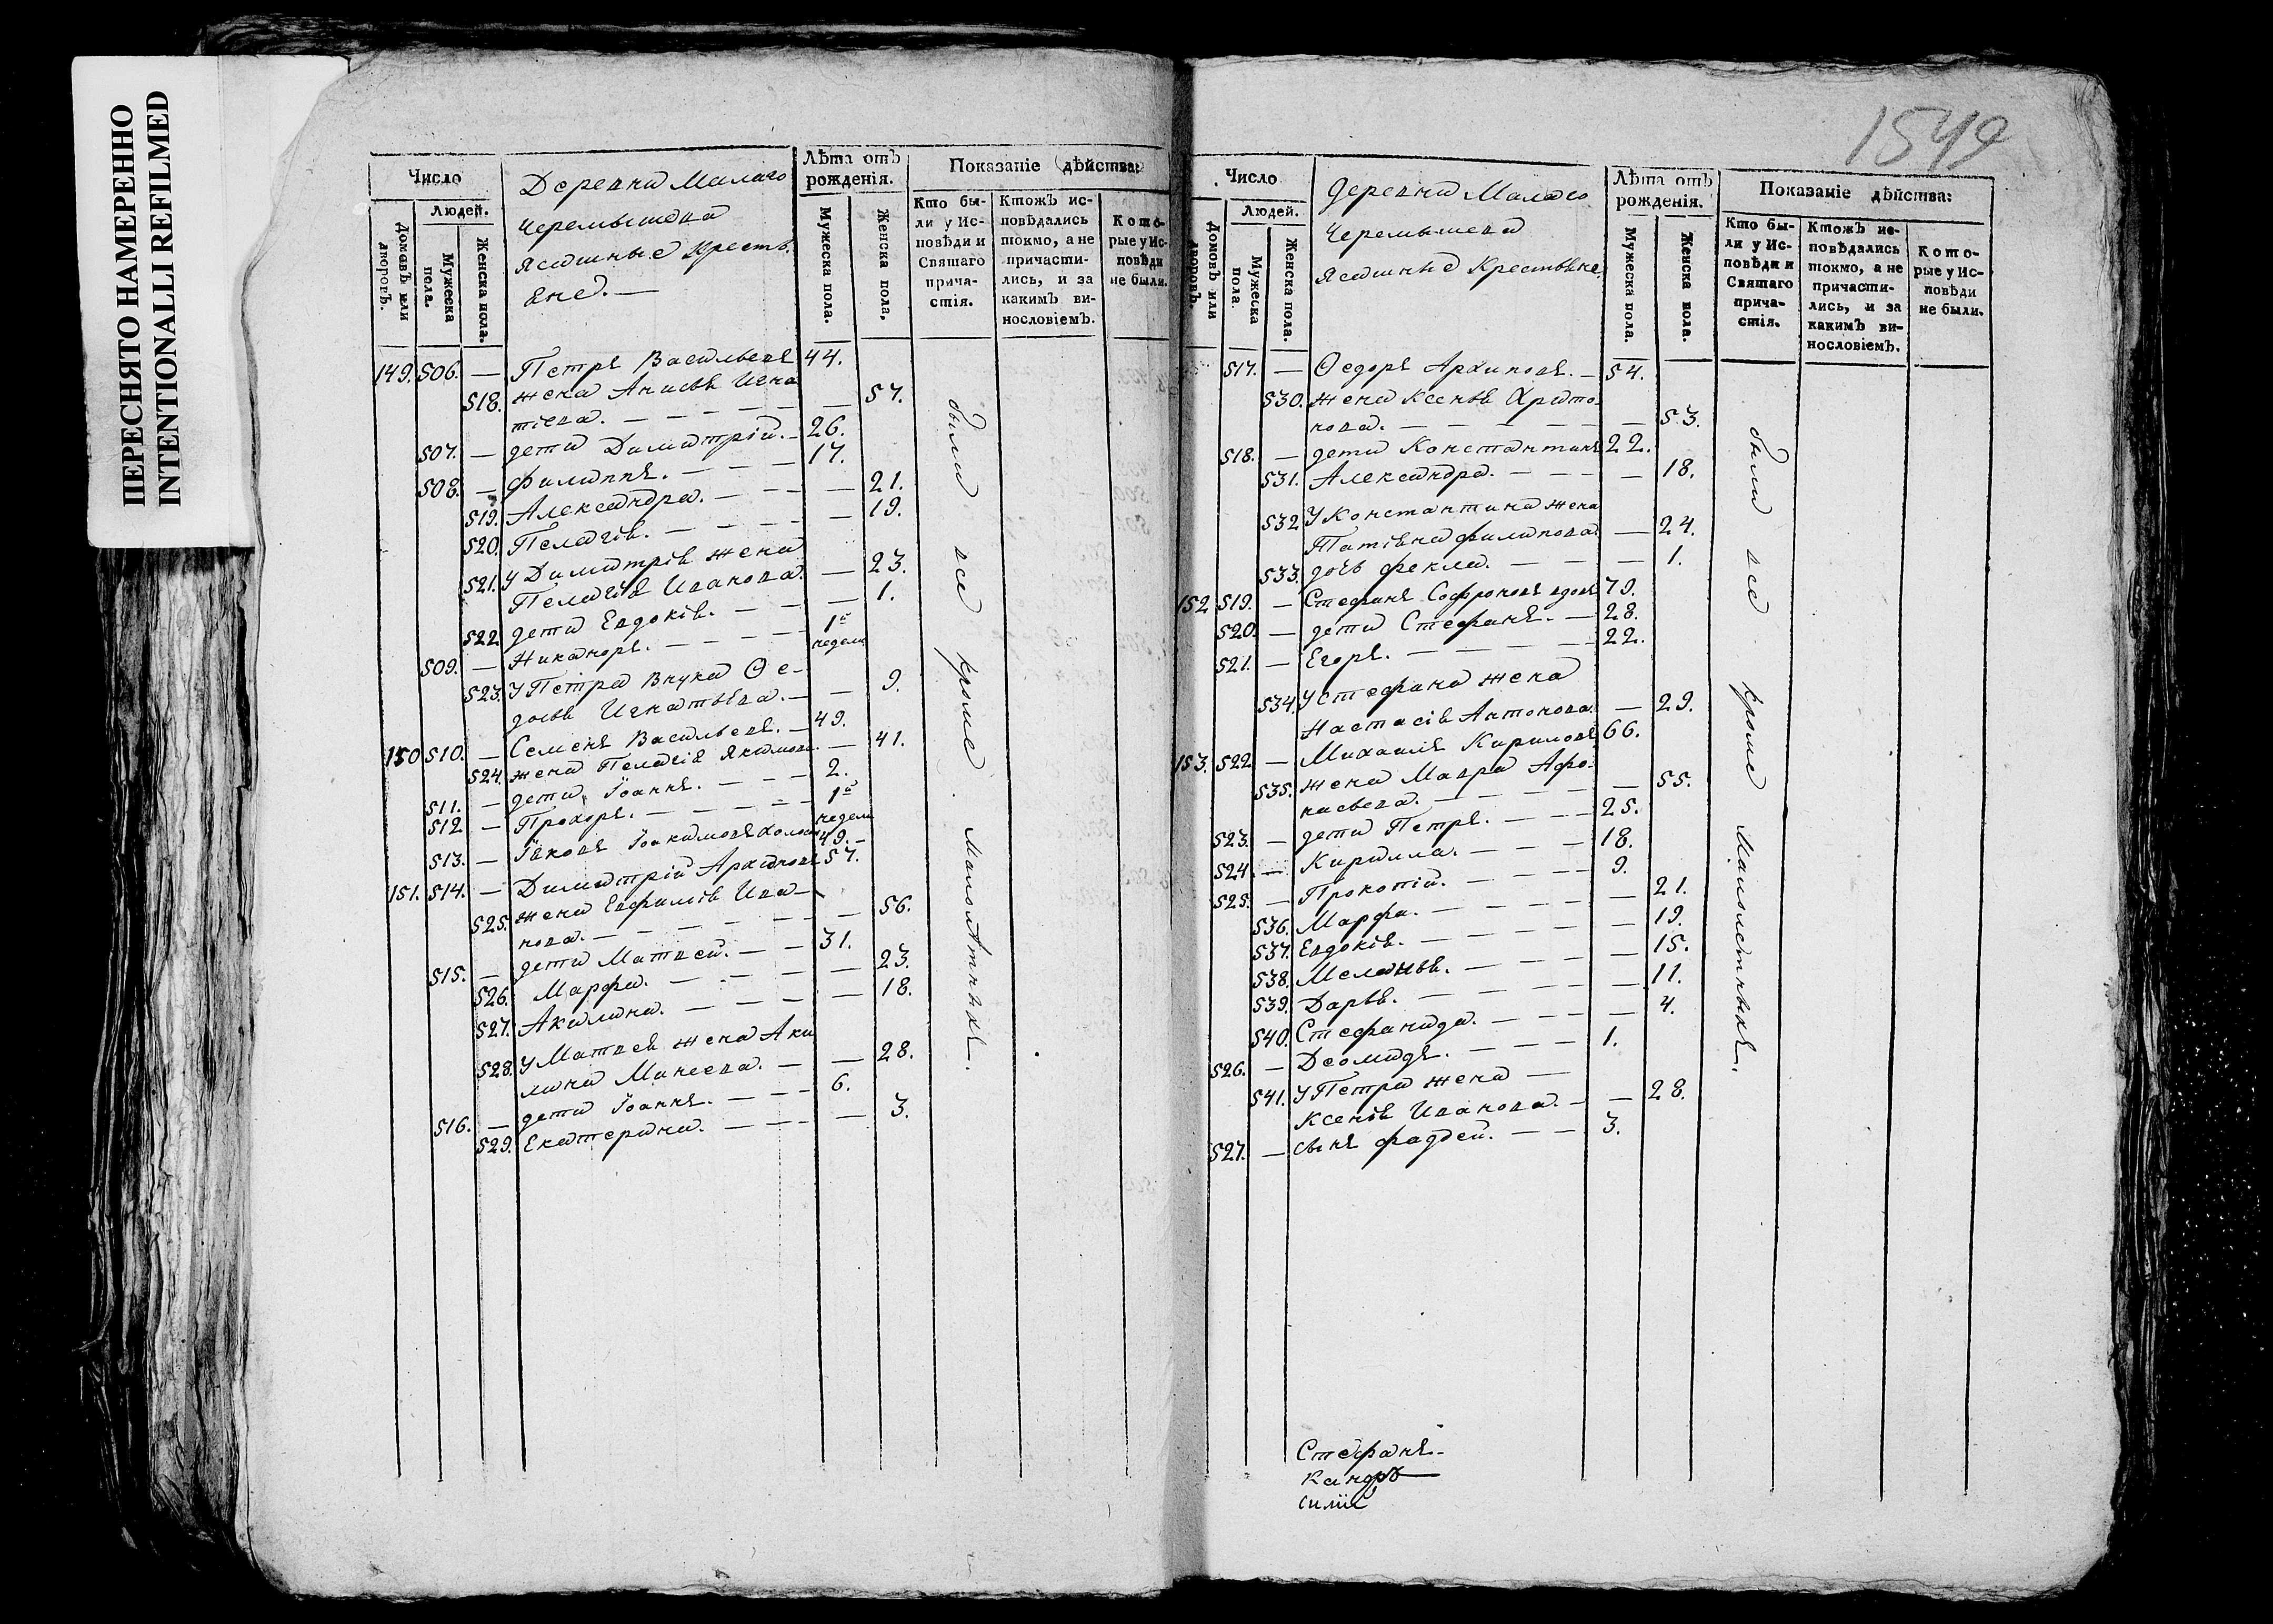 ПЕРЕСНЯТО НАМЕРЕННО
INTENTIONALLI REFILMED
Число
Людей.
Домовъ или дворовъ.
Мужеска пола.
Женска пола.
Деревни Малаго
Черемышева
Ясашные Кресть
яне. —
Лѣта отъ рожденія.
Мужеска пола.
Женска пола,
Показаніе дѣйства:
Кто были у Исповѣди и Святаго причастія.
Ктожъ исповѣдались токмо, а не причастились, и за какимъ винословіемъ.
Которые у Исповѣди не были.
149. 506. — Петръ Васильевъ 44.
518. жена Анисья Игна
тіева. — — 57.
507. — дети Димитрій. — 26.
508. — Филиппъ. — — 17.
519. Александра. — — 21.
520. Пелагія. — — 19.
521. У Димитрія жена
Пелагія Иванова. — 23.
522 дети Евдокія. — — 1.
509. — Никаноръ. — — 1й недели
523. У Петра Внука Ѳе-
досья Игнатьева. — — 9.
150 510. — Семенъ Васильевъ. — 49.
524. жена Пелагія Якимова. — 41.
511. — дети Іоаннъ. — — 2.
512 — Прохоръ. — — 1й недели
513. — Іяковъ Іоакимовъ холост 49. —
151. 514. — Димитрій Архиповъ 57.
525. жена Евфимія Ива—
нова. — — 56.
515. — дети Матвей. — — 31.
526. Марфа. — — 23.
527. Акилина. — — 18.
528. У Матвея жена Аки
лина Минеева. — — 28.
516. — дети Іоаннъ. — — 6.
529. Екатерина. — — 3.
были все кроме малолѣтныхъ.
1549
Число
Людей.
Домовъ или дворовъ.
Мужеска пола.
Женска пола.
Деревни Малаго
Черемышева
Ясашные Крестьяне.
Лѣта отъ рожденія.
Мужеска пола.
Женска пола.
Показаніе дѣйства:
Кто были у Исповѣди и Святаго причастія.
Ктожъ исповѣдались токмо, а не причастились, и за какимъ винословіемъ.
Которые у Исповѣди не были.
517. — Ѳедоръ Архиповъ. — 54.
530. жена Ксенья Харито-
нова. — — 53.
518. — дети Константинъ 22.
531. Александра. — — 18.
532 У Константина жена
Татіяна Филипова. — 24.
533. дочь Фекла. — — 1.
152 519. — Стефанъ Софроновъ вдовъ 79.
520. — дети Стефанъ. — 28.
521. — Егоръ. — — 22.
534. У Стефана жена
Настасія Антонова. — 29.
153. 522. — Михаилъ Кириловъ 66.
535. жена Мавра Афо-
насьева. — — 55.
523. — дети Петръ. — — 25.
524. — Кирилла. — — 18.
525. — Прокопій. — — 9.
536. Марфа. — — 21.
537. Евдокія. — — 19.
538. Меланья. — — 15.
539. Дарья. — — 11.
540. Стефанида. — — 4.
526. — Деомидъ. — — 1.
541. У Петра жена —
Ксенія Иванова. — — 28.
527. — сынъ Фаддей. — — 3.
были все кроме малолетныхъ.
Стефанъ